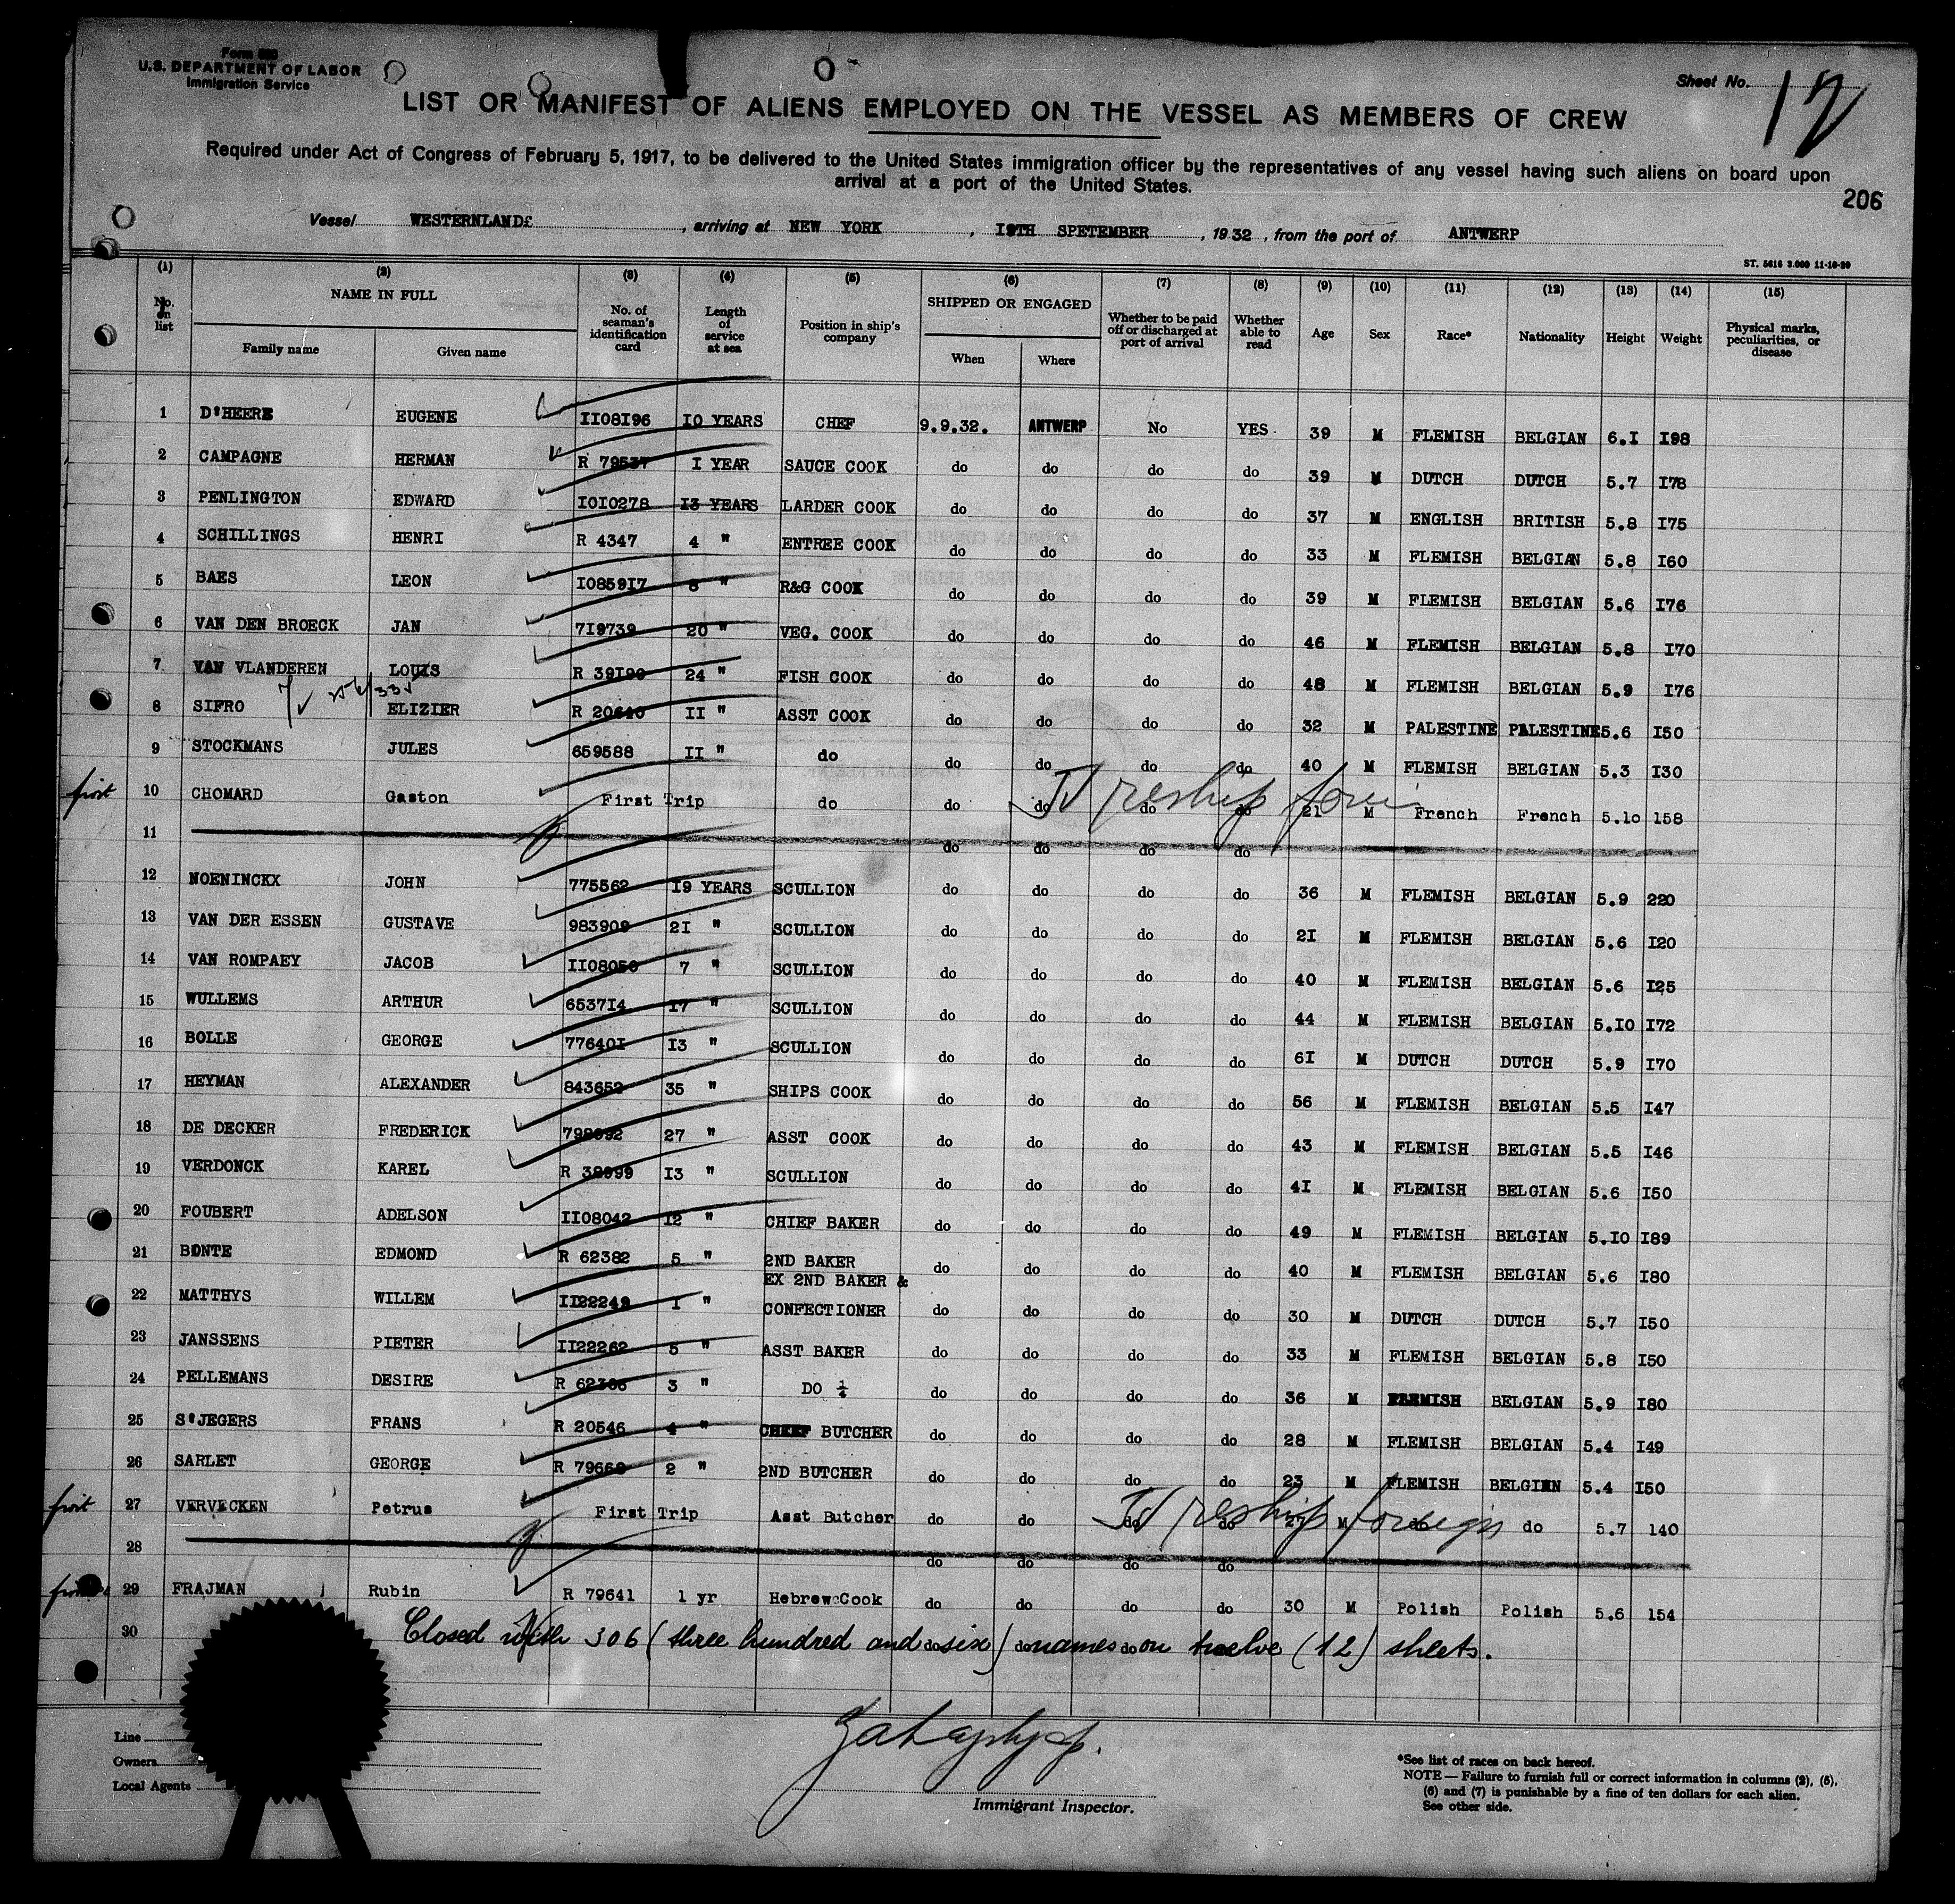 Form 680
U.S. DEPARTMENT OF LABOR
Immigration Service
Sheet No. 12
LIST OR MANIFEST OF ALIENS EMPLOYED ON THE VESSEL AS MEMBERS OF CREW
Required under Act of Congress of February 5, 1917, to be delivered to the United States immigration officer by the representatives of any vessel having such aliens on board upon
arrival at a port of the United States.
206
Vessel WESTERNLAND£, arriving at NEW YORK, I8TH SPETEMBER, 1932, from the port of ANTWERP
ST. 5616 3.000 11-10-30
(1) (2) (3) (4) (5) (6) (7) (8) (9) (10) (11) (12) (13) (14) (15)
No. on list NAME IN FULL Family name Given name No. of seaman's identification card Length of service at sea Position in ship's company SHIPPED OR ENGAGED When Where Whether to be paid off or discharged at port of arrival Whether able to read Age Sex Race* Nationality Height Weight Physical marks, peculiarities, or disease
1 D'HEERE EUGENE II08I96 IO YEARS CHEF 9.9.32. ANTWERP No YES 39 M FLEMISH BELGIAN 6.I I98
2 CAMPAGNE HERMAN R 79537 I YEAR SAUCE COOK do do do do 39 M DUTCH DUTCH 5.7 I78
3 PENLINGTON EDWARD IOI0278 I3 YEARS LARDER COOK do do do do 37 M ENGLISH BRITISH 5.8 I75
4 SCHILLINGS HENRI R 4347 4 " ENTREE COOK do do do do 33 M FLEMISH BELGIAN 5.8 I60
5 BAES LEON I0859I7 8 " R&G COOK do do do do 39 M FLEMISH BELGIAN 5.6 I76
6 VAN DEN BROECK JAN 7I9739 20 " VEG. COOK do do do do 46 M FLEMISH BELGIAN 5.8 I70
7 VAN VLANDEREN LOUIS R 39I90 24 " FISH COOK do do do do 48 M FLEMISH BELGIAN 5.9 I76
8 SIFRO ELIZIER R 20640 II " ASST COOK do do do do 32 M PALESTINE PALESTINE 5.6 I50
9 STOCKMANS JULES 659588 II " do do do do do 40 M FLEMISH BELGIAN 5.3 I30
first 10 CHOMARD Gaston First Trip do do do do do 21 M French French 5.10 158
reship
11 do do do do
12 NOENINCKX JOHN 775562 I9 YEARS SCULLION do do do do 36 M FLEMISH BELGIAN 5.9 220
13 VAN DER ESSEN GUSTAVE 983909 2I " SCULLION do do do do 2I M FLEMISH BELGIAN 5.6 I20
14 VAN ROMPAEY JACOB II08050 7 " SCULLION do do do do 40 M FLEMISH BELGIAN 5.6 I25
15 WULLEMS ARTHUR 6537I4 I7 " SCULLION do do do do 44 M FLEMISH BELGIAN 5.I0 I72
16 BOLLE GEORGE 77640I I3 " SCULLION do do do do 6I M DUTCH DUTCH 5.9 I70
17 HEYMAN ALEXANDER 843652 35 " SHIPS COOK do do do do 56 M FLEMISH BELGIAN 5.5 I47
18 DE DECKER FREDERICK 27 " ASST COOK do do do do 43 M FLEMISH BELGIAN 5.5 I46
19 VERDONCK KAREL R 38999 I3 " SCULLION do do do do 4I M FLEMISH BELGIAN 5.6 I50
20 FOUBERT ADELSON II08042 I2 " CHIEF BAKER do do do do 49 M FLEMISH BELGIAN 5.I0 I89
21 BONTE EDMOND R 62382 5 " 2ND BAKER do do do do 40 M FLEMISH BELGIAN 5.6 I80
22 MATTHYS WILLEM II22249 I " EX 2ND BAKER & CONFECTIONER do do do do 30 M DUTCH DUTCH 5.7 I50
23 JANSSENS PIETER II22262 5 " ASST BAKER do do do do 33 M FLEMISH BELGIAN 5.8 I50
24 PELLEMANS DESIRE R 3 " DO ¼ do do do do 36 M FLEMISH BELGIAN 5.9 I80
25 S'JEGERS FRANS R 20546 4 " CHEEF BUTCHER do do do do 28 M FLEMISH BELGIAN 5.4 I49
26 SARLET GEORGE R 79668 2 " 2ND BUTCHER do do do do 23 M FLEMISH BELGIAN 5.4 I50
first 27 VERVECKEN Petrus First Trip Asst Butcher do do do do M do do 5.7 140
reship foreign
28 do do do do
29 FRAJMAN Rubin R 79641 1 yr Hebrew Cook do do do do 30 M Polish Polish 5.6 154
30 Closed with 306 (three hundred and six) names on twelve (12) sheets.
Line
Owners
Local Agents
Immigrant Inspector.
*See list of races on back hereof.
NOTE — Failure to furnish full or correct information in columns (2), (5),
(6) and (7) is punishable by a fine of ten dollars for each alien.
See other side.